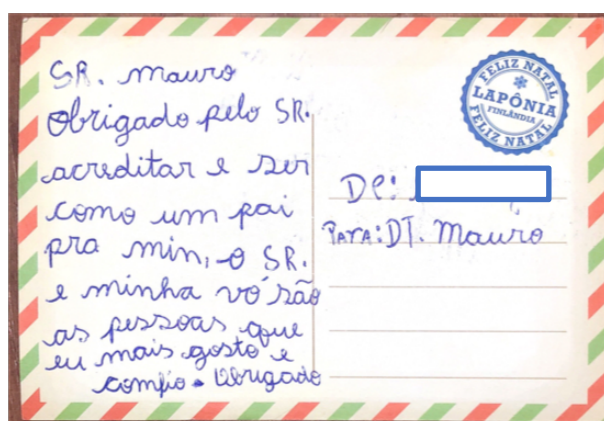 SR. mauro
Obrigado pelo SR.
acreditar e ser
como um pai
pra min, o SR.
e minha vó são
as pessoas que
eu mais gosto e
comfio. Obrigado
FELIZ NATAL
LAPÔNIA
FINLÂNDIA
FELIZ NATAL
De:
PARA: DT. Mauro